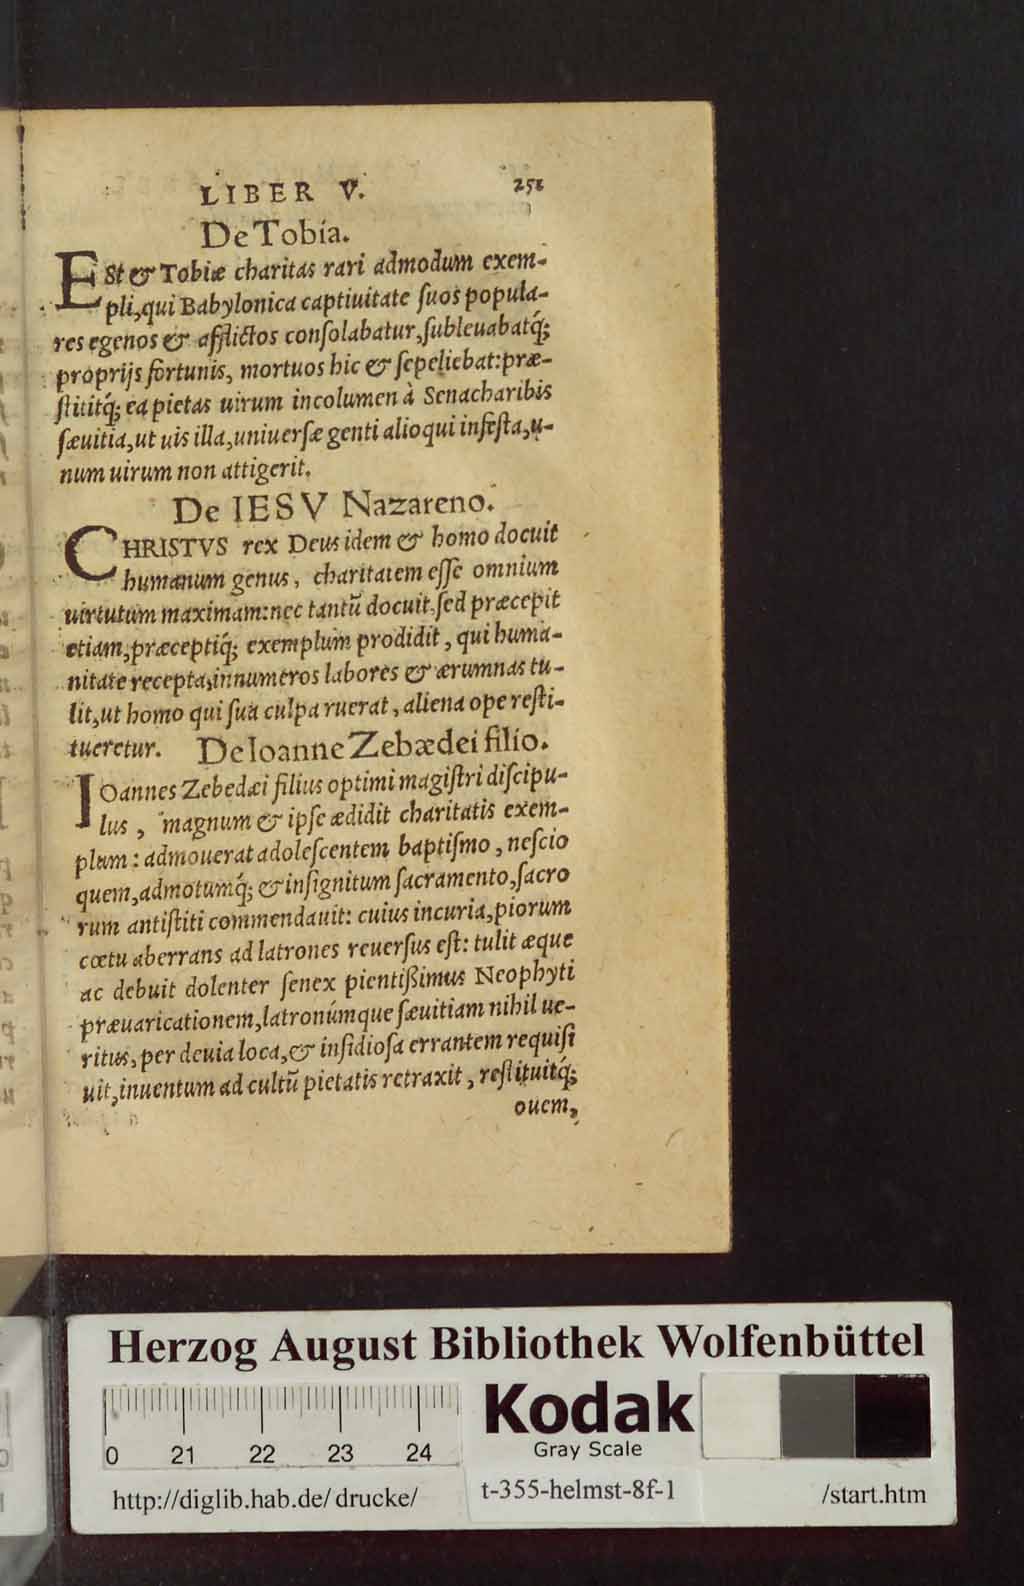 LIBER V. 251
De Tobia.
ESt & Tobiæ charitas rari admodum exem-
pli, qui Babylonica captiuitate ſuos popula-
res egenos & afflictos conſolabatur, ſubleuabatq́;
proprijs fortunis, mortuos hic & ſepeliebat: præ-
ſtititq́; ea pietas uirum incolumen à Senacharibis
ſæuitia, ut uis illa, uniuerſæ genti alioqui infeſta, u-
num uirum non attigerit.
De IESV Nazareno.
CHRISTVS rex Deus idem & homo docuit
humanum genus, charitatem eſſe omnium
uirtutum maximam: nec tantū docuit, ſed præcepit
etiam, præceptiq́; exemplum prodidit, qui huma-
nitate recepta, innumeros labores & ærumnas tu-
lit, ut homo qui ſua culpa ruerat, aliena ope reſti-
tueretur. De Ioanne Zebædei filio.
IOannes Zebedæi filius optimi magiſtri diſcipu-
lus, magnum & ipſe ædidit charitatis exem-
plum: admouerat adoleſcentem baptiſmo, neſcio
quem, admotumq́; & inſignitum ſacramento, ſacro
rum antiſtiti commendauit: cuius incuria, piorum
cœtu aberrans ad latrones reuerſus eſt: tulit æque
ac debuit dolenter ſenex pientißimus Neophyti
præuaricationem, latronúmque ſæuitiam nihil ue-
ritus, per deuia loca, & inſidioſa errantem requiſi
uit, inuentum ad cultū pietatis retraxit, reſtituitq́;
ouem,
Herzog August Bibliothek Wolfenbüttel
Kodak
Gray Scale
0 21 22 23 24
http://diglib.hab.de/drucke/ t-355-helmst-8f-1 /start.htm